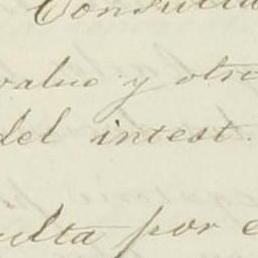 Consulta
value y otro
del intest.
ulta por e